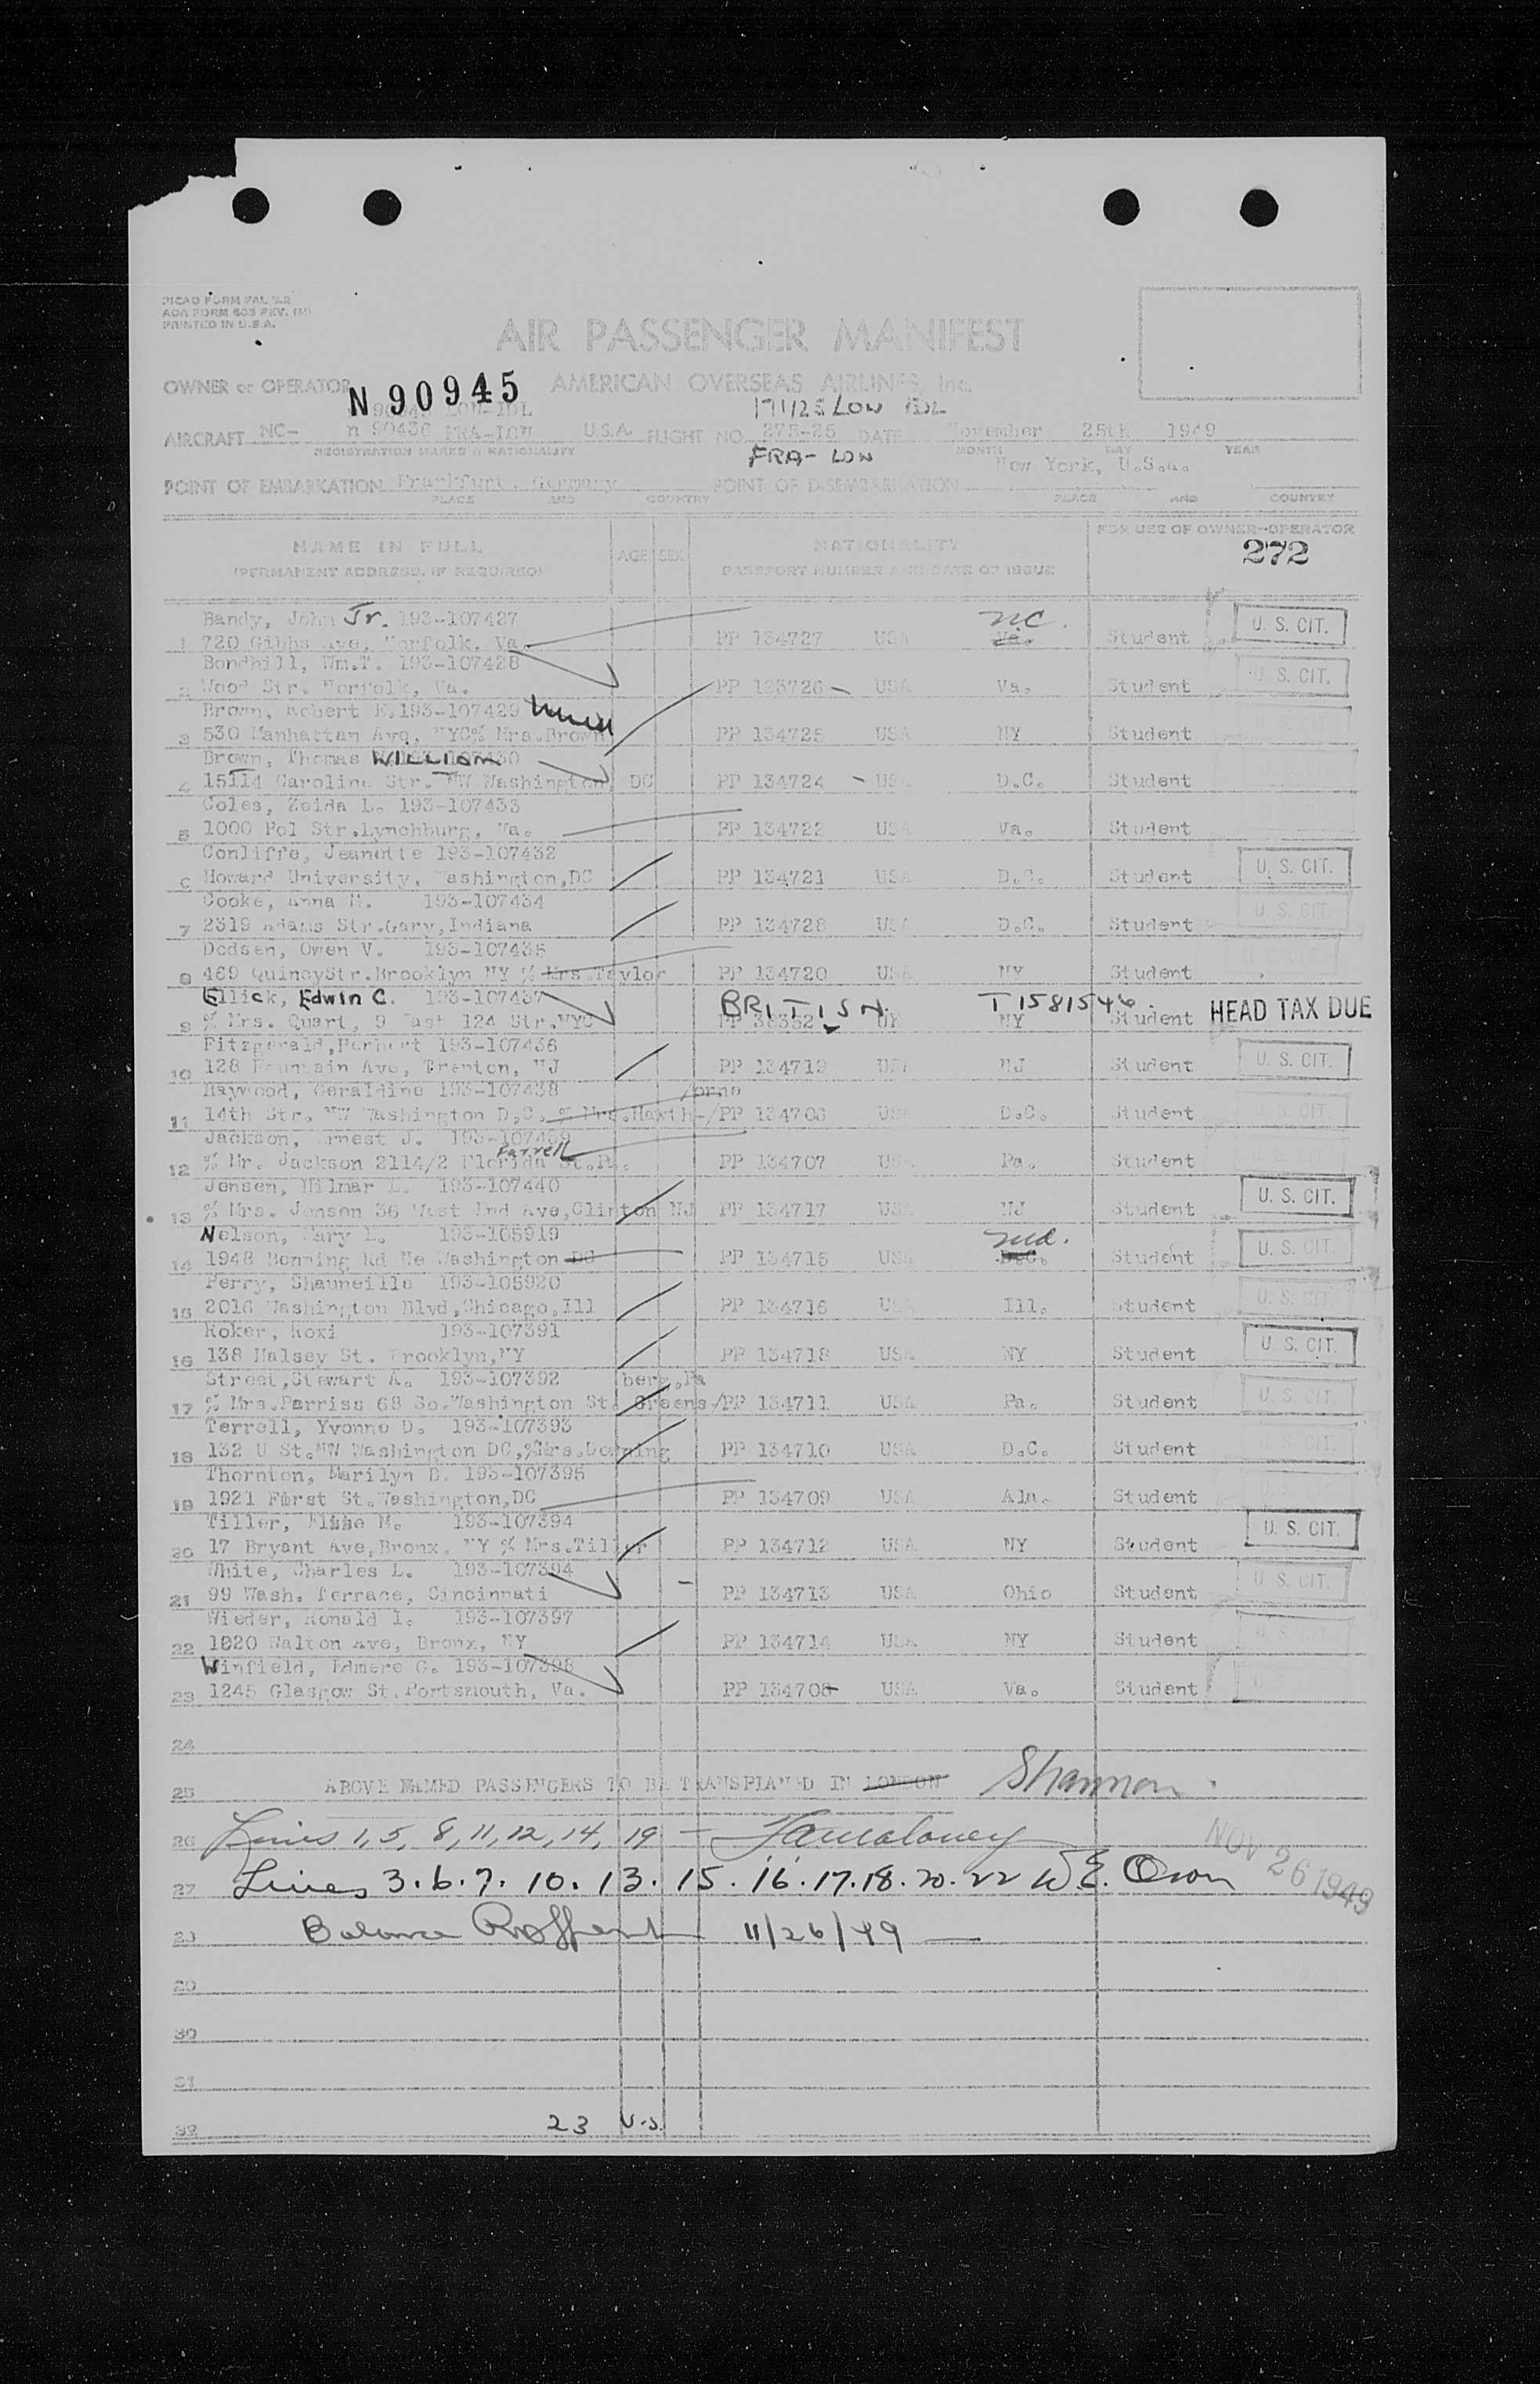 PICAO FORM FAL 2.2
AOA FORM 603 REV.
PRINTED IN U.S.A.
AIR PASSENGER MANIFEST
OWNER or OPERATOR N 90945 AMERICAN OVERSEAS AIRLINES, Inc.
LON-IDL 171125 LON IDL
AIRCRAFT NC- n 90436 FRA-LON U.S.A. FLIGHT NO. 275-25 DATE November 25th 1949
REGISTRATION MARKS & NATIONALITY FRA-LON MONTH DAY YEAR
New York, U.S.A.
POINT OF EMBARKATION Frankfurt, Germany POINT OF DISEMBARKATION
PLACE AND COUNTRY PLACE AND COUNTRY
NAME IN FULL AGE SEX NATIONALITY FOR USE OF OWNER-OPERATOR
(PERMANENT ADDRESS, IF REQUIRED) PASSPORT NUMBER AND DATE OF ISSUE 272
Bandy, John Jr. 193-107427 NC. U. S. CIT.
1 720 Gibbs Ave, Norfolk, Va. PP 134727 USA Va. Student
Bondhill, Wm.T. 193-107428 U. S. CIT.
2 Wood Str. Norfolk, Va. PP 123726 USA Va. Student
Brown, Robert E. 193-107429
3 530 Manhattan Ave, NYC% Mrs.Brown PP 134725 USA NY Student
Brown, Thomas WILLIAM
4 Caroline Str. NW Washington DC PP 134724 USA D.C. Student
Coles, Zeida L. 193-107433
5 1000 Pol Str.Lynchburg, Va. PP 134722 USA Va. Student
Conliffe, Jeanette 193-107432 U. S. CIT.
6 Howard University, Washington,DC PP 134721 USA D.C. Student
Cooke, Anna M. 193-107434 U. S. CIT.
7 2319 Adams Str.Gary,Indiana PP 134728 USA D.C. Student
Dodsen, Owen V. 193-107435
8 469 QuincyStr.Brooklyn NY % Mrs.Taylor PP 134720 USA NY Student
Ellick, Edwin C. 193-107437 BRITISH T1581546. HEAD TAX DUE
9 % Mrs. Quart, 9 East 124 Str.NYC PP UK NY Student
Fitzgerald,Herbert 193-107436 U. S. CIT.
10 128 Fountain Ave, Trenton, NJ PP 134719 USA NJ Student
Haywood, Geraldine 193-107438 /orne
11 14th Str. NW Washington D.C. % Mrs.Hawth-/PP 134706 USA D.C. Student
Jackson, Ernest J. 193-107439
Farrell
12 % Mr. Jackson 2114/2 Florida St. PP 134707 USA Pa. Student
Jensen, Hilmar L. 193-107440 U. S. CIT.
13 % Mrs. Jensen 36 West End Ave,Clinton NJ PP 134717 USA NJ Student
Nelson, Mary L. 193-105919 Md. U. S. CIT.
14 1948 Benning Rd Ne Washington DC PP 134715 USA D.C. Student
Perry, Shauneille 193-105920 U. S. CIT.
15 2016 Washington Blvd,Chicago,Ill PP 134716 USA Ill. Student
Roker, Roxi 193-107391 U. S. CIT.
16 138 Halsey St. Brooklyn,NY PP 134718 USA NY Student
Street,Stewart A. 193-107392 berg,Pa U. S. CIT.
17 % Mrs.Parriss 68 So.Washington St. Greens-/PP 134711 USA Pa. Student
Terrell, Yvonne D. 193-107393
18 132 U St.NW Washington DC,%Mrs.Downing PP 134710 USA D.C. Student
Thornton, Marilyn B. 193-107395
19 1921 First St.Washington,DC PP 134709 USA Ala. Student
Tiller, M. 193-107394 U. S. CIT.
20 17 Bryant Ave,Bronx, NY % Mrs.Tiller PP 134712 USA NY Student
White, Charles L. 193-107394 U. S. CIT.
21 99 Wash. Terrace, Cincinnati PP 134713 USA Ohio Student
Wieder, Ronald I. 193-107397 U. S. CIT.
22 1820 Walton Ave, Bronx, NY PP 134714 USA NY Student
Winfield, G. 193-107398
23 1245 Glasgow St.Portsmouth, Va. PP 134708 USA Va. Student
24
25 ABOVE NAMED PASSENGERS TO BE TRANSPLANED IN LONDON Shannon.
26 Lines 1, 5, 8, 11, 12, 14, 19 -
NOV 26 1949
27 Lines 3. 6. 7. 10. 13. 15. 16. 17. 18. 20. 22
28 Balance 11/26/49
29
30
31
32 23 U.S.